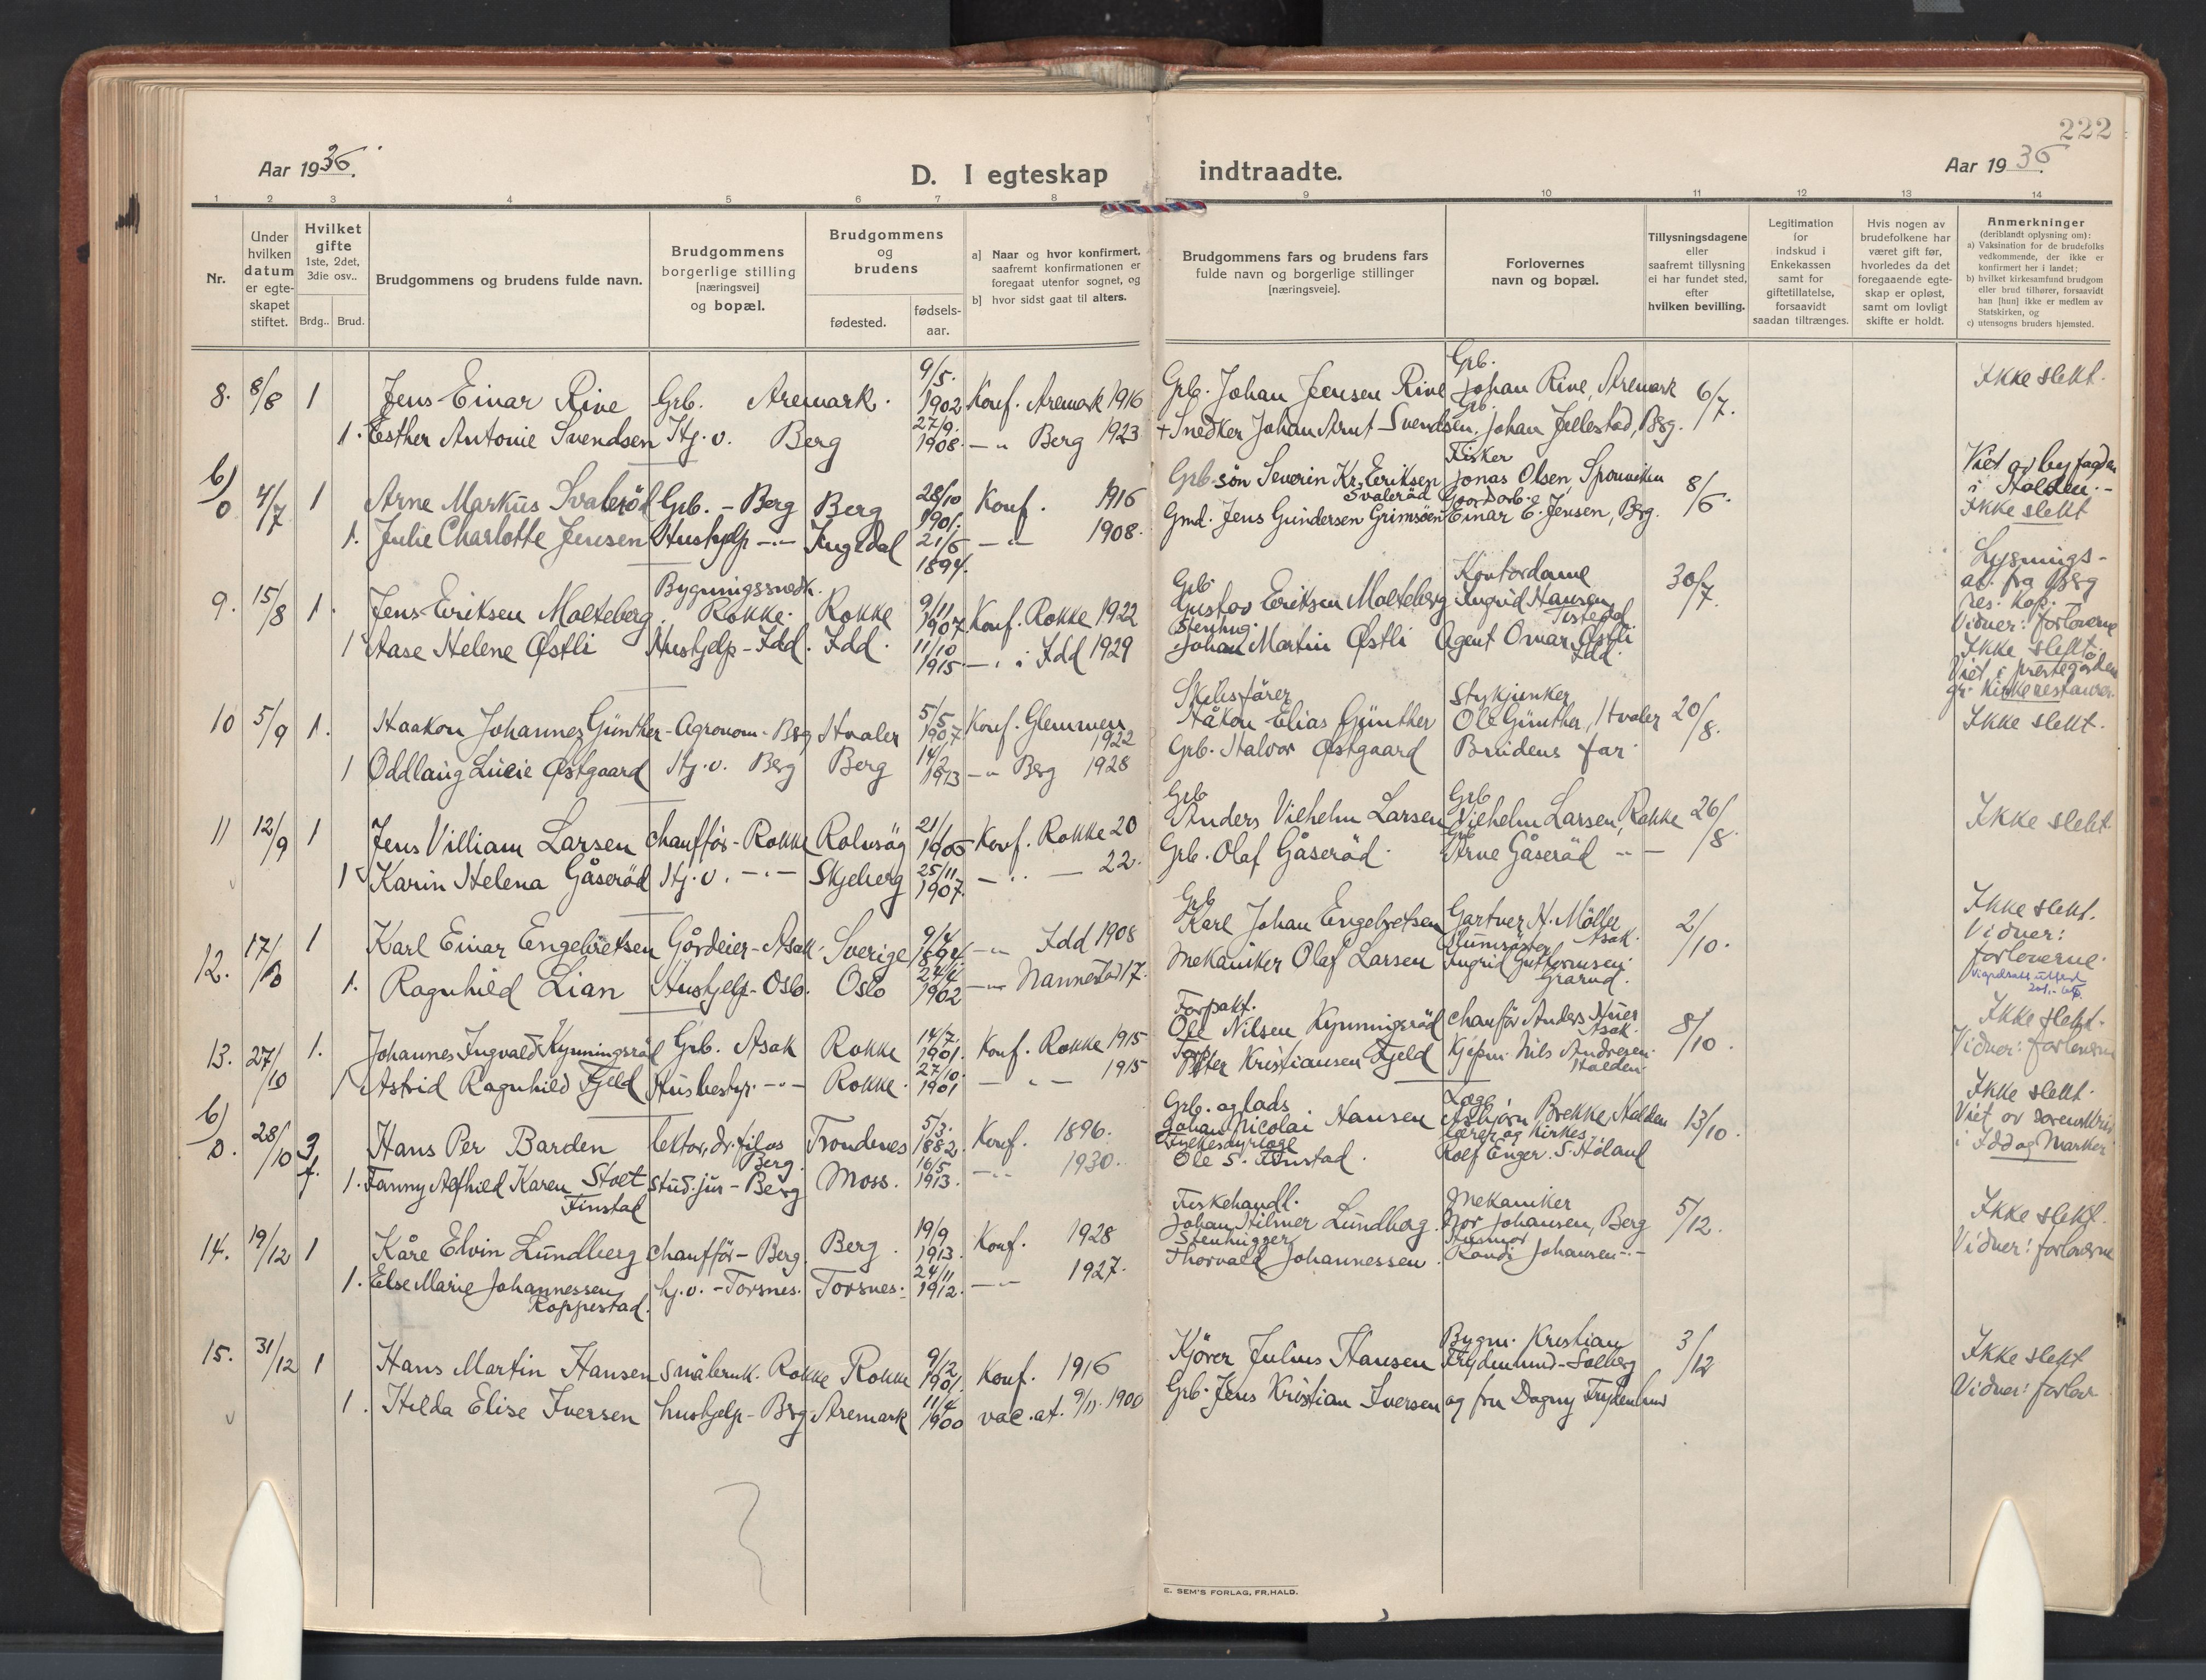 222
Aar 1936.
D. I egteskap indtraadte.
Aar 1936.
1 2 3 4 5 6 7 8 9 10 11 12 13 14
Nr.
Under hvilken datum er egte-skapet stiftet.
Hvilket gifte 1ste, 2det, 3die osv..
Brdg.. Brud.
Brudgommens og brudens fulde navn.
Brudgommens borgerlige stilling [næringsvei] og bopæl.
Brudgommens og brudens
fødested.
fødsels-aar.
a] Naar og hvor konfirmert, saafremt konfirmationen er foregaat utenfor sognet, og
b] hvor sidst gaat til alters.
Brudgommens fars og brudens fars fulde navn og borgerlige stillinger [næringsveie].
Forlovernes navn og bopæl.
Tillysningsdagene eller saafremt tillysning ei har fundet sted, efter hvilken bevilling.
Legitimation for indskud i Enkekassen samt for giftetillatelse, forsaavidt saadan tiltrænges.
Hvis nogen av brudefolkene har været gift før, hvorledes da det foregaaende egte-skap er opløst, samt om lovligt skifte er holdt.
Anmerkninger (deriblandt oplysning om):
a) Vaksination for de brudefolks vedkommende, der ikke er konfirmert her i landet;
b) hvilket kirkesamfund brudgom eller brud tilhører, forsaavidt han [hun] ikke er medlem av Statskirken, og
c) utensogns bruders hjemsted.
8. 8/8 1 Jens Einar Rive Grb. Aremark. 9/5. 1902 Konf. Aremark 1916 Grb. Johan Jensen Rive Grb. Johan Rive, Aremark 6/7. Ikke slekt.
1. Esther Antonie Svendsen Hj.v. Berg 27/9. 1908. -"- Berg 1923 + Snedker Johan Arnt Svendsen. Grb. Johan Jellestad, Bsg.
b) 0 4/7 1 Arne Markus Svaleröd Grb. - Berg Berg 28/10 1901. Konf. 1916 Grb. søn Severin Kr. Eriksen Svaleröd Fisker Jonas Olsen, Sponviken 8/6. Viet av byfogden i Halden.- Ikke slekt
1. Julie Charlotte Jensen Hushjelp -"- Ingedal 21/6 1894. -"- 1908. Gmd. Jens Gundersen Grimsöen Gaardarb. Einar E. Jensen, Brg.
9. 15/8 1. Jens Eriksen Molteberg. Bygningssnedk. Rokke. Rokke 9/11 1907. Konf. Rokke 1922 Grb. Gustav Eriksen Molteberg Kontordame Ingrid Hansen Tistedal 30/7. Lysnings-at. fra Berg res. kap. Vidner: forloverne
1 Aase Helene Østli Hushjelp - Idd. Idd. 11/10 1915. -"- i Idd 1929 Stenhug. Johan Martin Østli Agent Omar Østli Idd. Ikke slekt.
Viet i prestegården gr. kirkerestaurer.
10 5/9 1. Haakon Johannes Günther - Agronom - Brg Hvaler 5/5 1907 Konf. Glemmen 1922 Skibsfører Håkon Elias Günther Stykjunker Ole Günther, Hvaler 20/8. Ikke slekt.
1 Oddlaug Lucie Østgaard Hj.v. Berg Berg 1913 -"- Berg 1928 Grb. Halvor Østgaard Brudens far.
11 12/9 1 Jens Villiam Larsen chaufför - Rokke Rolvsöy 21/1 Konf. Rokke 20 Grb Anders Vilhelm Larsen Grb Vilhelm Larsen, Rokke 26/8. Ikke slekt
1 Karin Helena Gåseröd Hj.v. -"- Skjeberg 25/11 1907. -"- 22. Grb. Olaf Gåseröd. Arne Gåseröd -"-
12. 17/10 1 Karl Einar Engebretsen Gårdeier - Asak. Sverige 9/4 1894. -"- Idd 1908 Grb Karl Johan Engebretsen Gartner N. Möller Asak. 2/10. Ikke slekt. Vidner: forloverne.
1. Ragnhild Lian Hushjelp - Oslo. Oslo 24/4 1902 -"- Nannestad 17. Mekaniker Olaf Larsen Ingrid Guttormsen. Grarud.
13. 27/10 1. Johannes Ingvald Kynningsröd Grb. Asak Rokke 14/7. 1901. Konf. Rokke 1915 Forpakt. Ole Nilsen Kynningsröd chauför Anders Huer Asak. 8/10. Ikke slekt. Vidner: forloverne
1 Astrid Ragnhild Fjeld Husbestyr. -"- Rokke. 27/10. 1901 -"- 1915 Peter Kristiansen Fjeld Kjøpm. Nils Andresen. Halden.
b) 0. 28/10 3. Hans Per Barden lektor, dr. filos Berg. Trondenes 5/3. 1882. Konf. 1896. Grb. og lads Johan Nicolai Hansen Læge Asbjørn Brekke, Halden 13/10. Ikke slekt. Viet av sorenskriv i Idd og Marker
1. Fanny Alfhild Karen Stoet Finstad stud. jur - Berg Moss. 16/5 1913. -"- 1930. Fylkesdyrlæge Ole S. Finstad. lærer og kirkes. Rolf Enger. S. Höland
14. 19/12 1 Kåre Elvin Lundberg chaufför - Berg. Berg. 19/9 1913. Konf. 1928 Fiskehandl. Johan Hilmer Lundberg. Mekaniker Nor Johansen, Berg 5/12. Ikke slekt. Vidner: forloverne
1. Else Marie Johannessen Roppestad. hj.v. - Torsnes. Torsnes. 24/11 1912. -"- 1927. Stenhugger Thorvald Johannessen. Husmor Randi Johansen -"-
15. 31/12 1 Hans Martin Hansen småbruk. Rokke Rokke 9/12 1901. Konf. 1916 Kjörer Julius Hansen Bygm. Kristian Frydenlund - Solberg 3/12 Ikke slekt Vidner: forlov.
1. Hilda Elise Iversen hushjelp - Brg. Aremark 11/4 1900 vac. at. 9/11. 1900 Grb. Jens Kristian Iversen og fru Dagny Frydenlund
E. SEM'S FORLAG, FR.HALD.